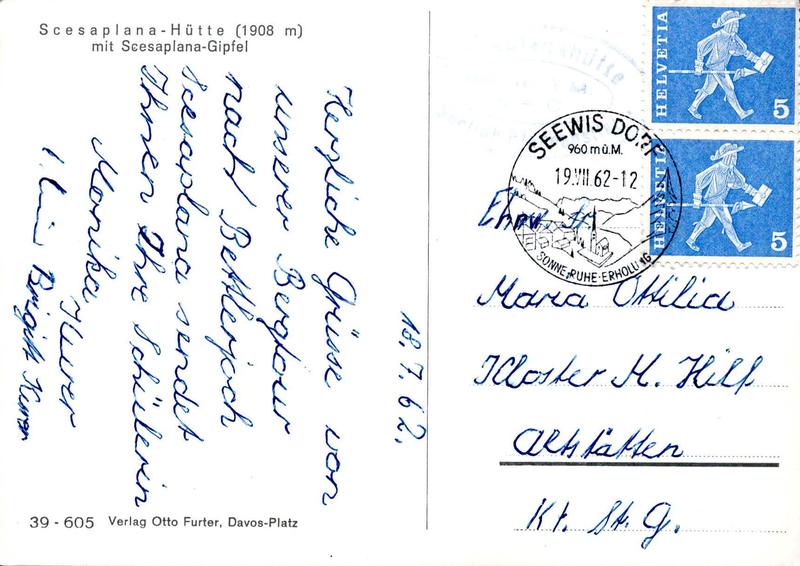 Scesaplana-Hütte (1908 m)
mit Scesaplana-Gipfel
18.7.62.
Herzliche Grüsse von
unserer Bergtour
nach Bettlerjoch
Scesaplana sendet
Ihnen Ihre Schülerin
Monika
Brigitt
39-605 Verlag Otto Furter, Davos-Platz
HELVETIA 5
HELVETIA 5
SEEWIS DORF
960 m ü. M.
19.VII.62-12
SONNE·RUHE·ERHOLUNG
Ehrw. Sr.
Maria Ottilia
Kloster M. Hilf
Altstätten
Kt. St. G.